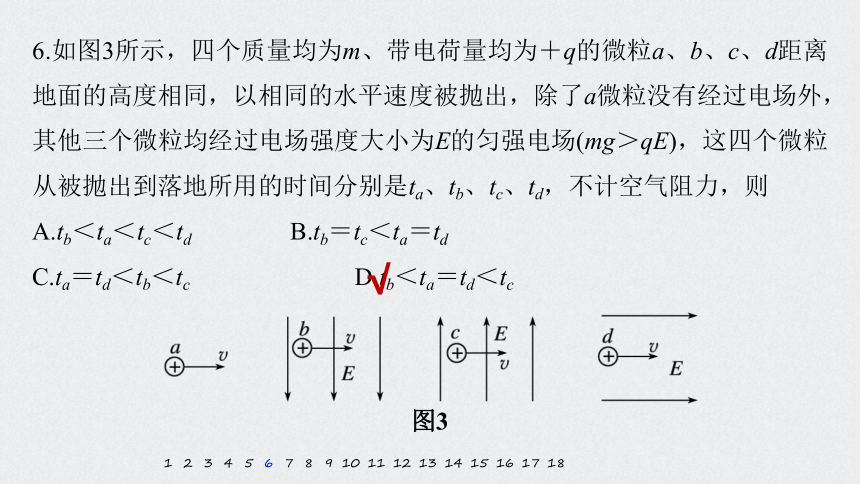 6.如图3所示，四个质量均为m、带电荷量均为＋q的微粒a、b、c、d距离
地面的高度相同，以相同的水平速度被抛出，除了a微粒没有经过电场外，
其他三个微粒均经过电场强度大小为E的匀强电场(mg＞qE)，这四个微粒
从被抛出到落地所用的时间分别是ta、tb、tc、td，不计空气阻力，则
A.tb＜ta＜tc＜td B.tb＝tc＜ta＝td
C.ta＝td＜tb＜tc D.tb＜ta＝td＜tc
√
a + v
b + v E
c + E v
d + v E
图3
1 2 3 4 5 6 7 8 9 10 11 12 13 14 15 16 17 18